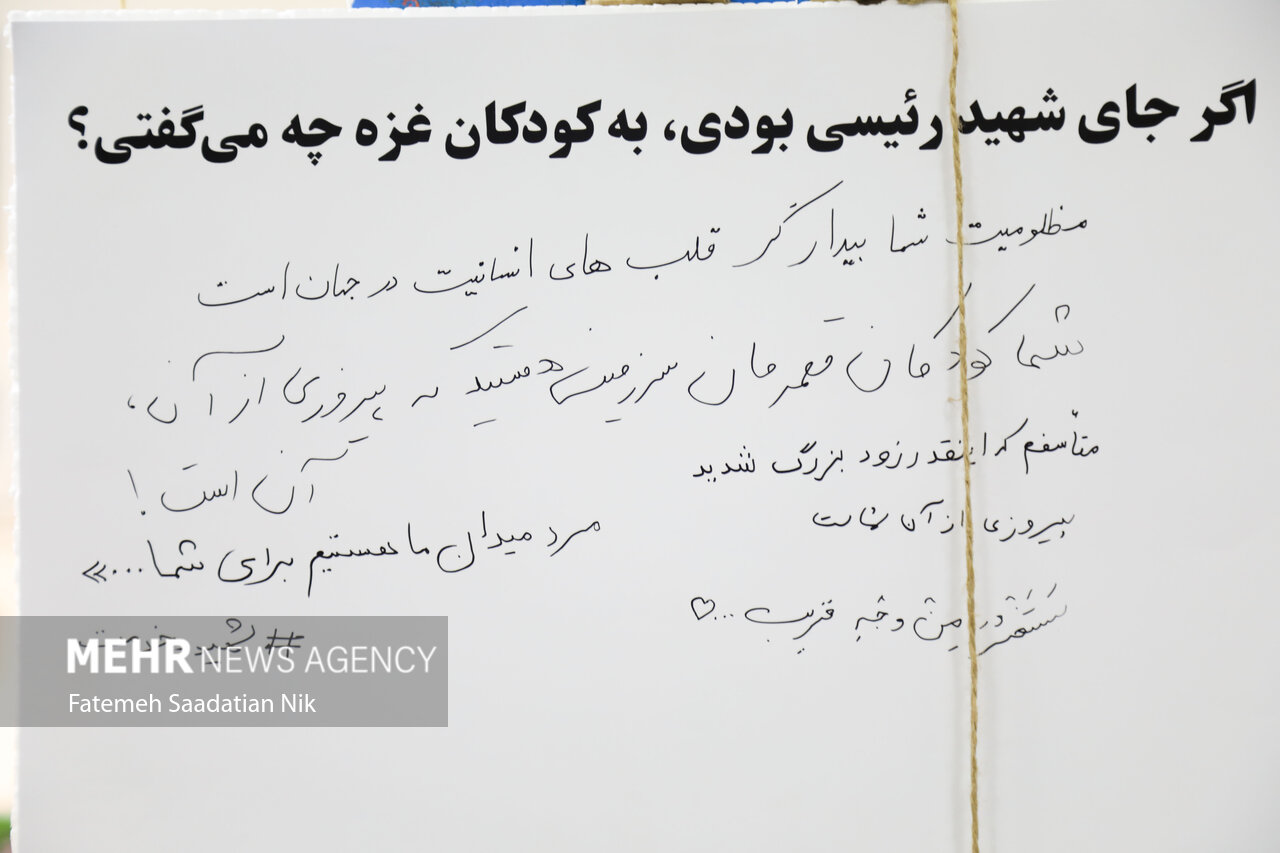 اگر جای شهید رئیسی بودی، به کودکان غزه چه می‌گفتی؟
مظلومیت شما بیدارگر قلب های انسانیت در جهان است
شما کودکان قهرمان سرزمینی هستید که پیروزی از آن،
آن است!
متأسفم که اینقدر زود بزرگ شدید
پیروزی از آن شماست
مرد میدان ما هستیم برای شما...»
وجبه قریب...♡
#شهید_خدمت
MEHR NEWS AGENCY
Fatemeh Saadatian Nik